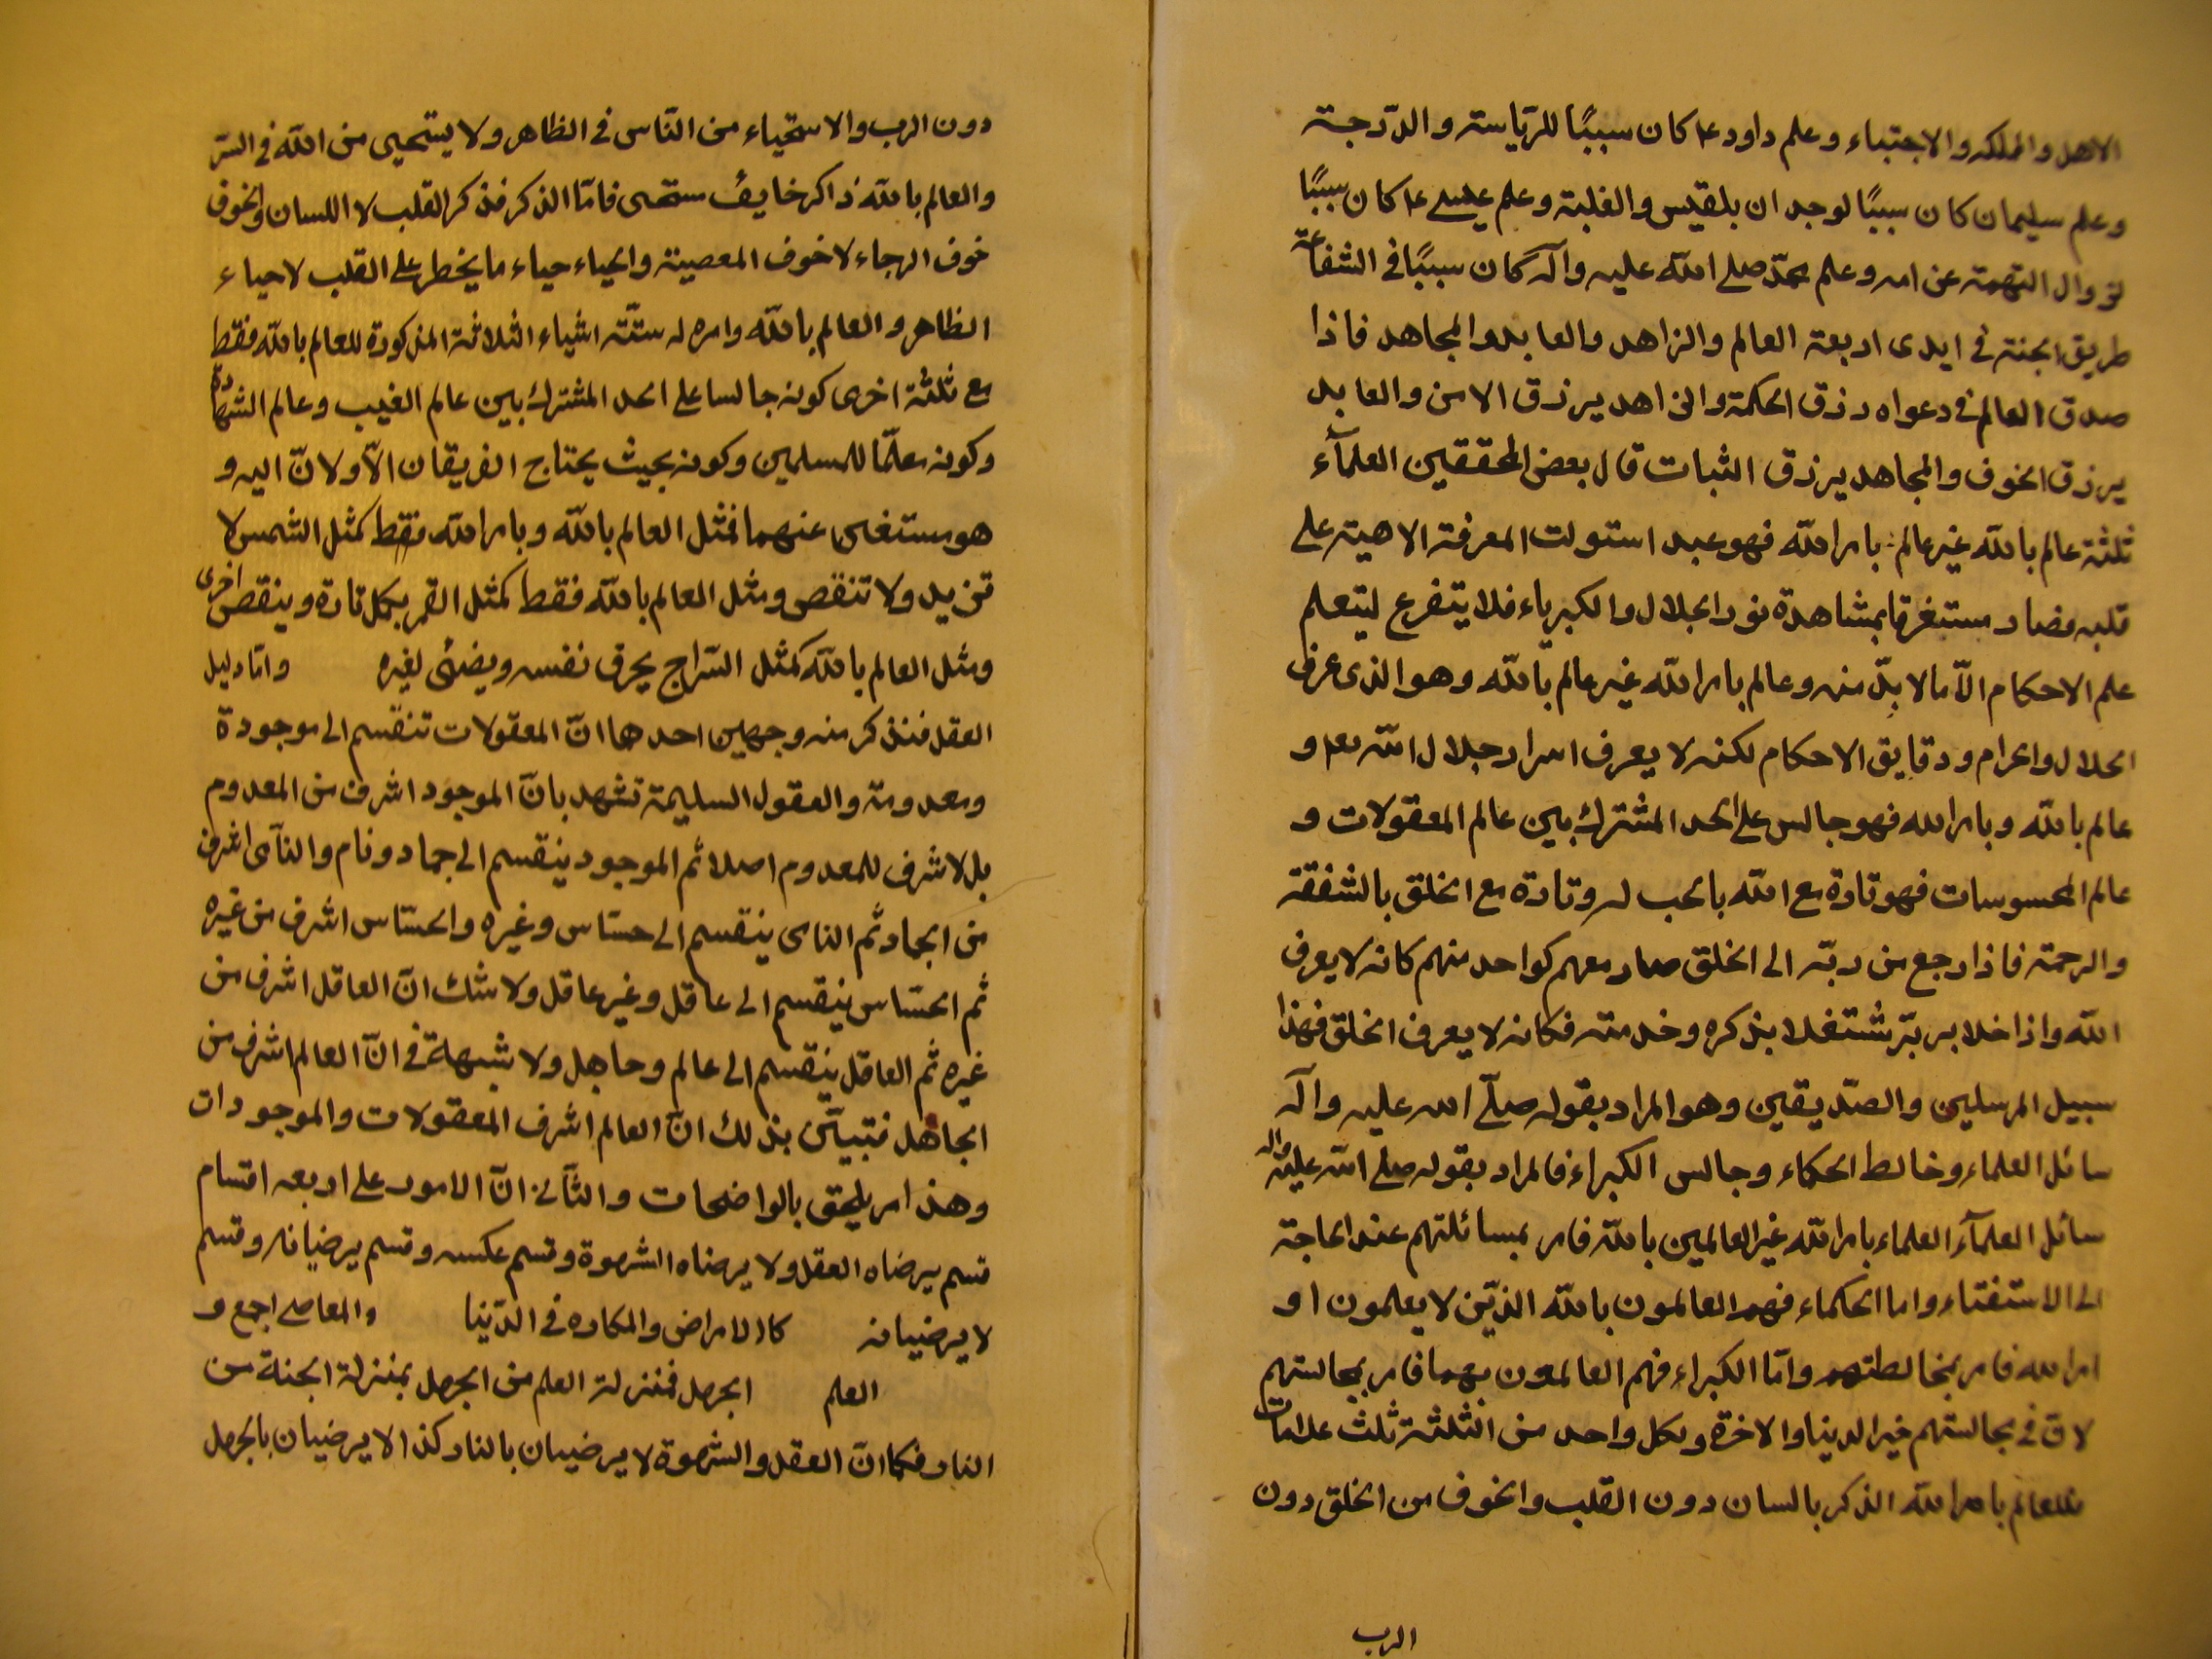 الاهل والملكه والاجتباء وعلم داود ع كان سببًا للرّياسته والدّرجته
وعلم سليمان كان سببًا لوجدان بلقيس والغلبة وعلم عيسى ع كان سببًا
لزوال التهمة عن امه وعلم محمّد صلى الله عليه وآله كان سببًا في الشفاعة
طريق الجنة في ايدى اربعة العالم والزاهد والعابد والمجاهد فاذا
صدق العالم في دعواه رزق الحكمة والزاهد يرزق الامن والعابد
يرزق الخوف والمجاهد يرزق الثبات قال بعض المحققين العلمآء
ثلثة عالم بالله غير عالم بامر الله فهو عبد استولت المعرفة الالهية على
قلبه فصار مستغرقا بمشاهدة نور الجلال والكبرياء فلا يتفرع ليتعلم
علم الاحكام الّا ما لا بدّ منه وعالم بامر الله غير عالم بالله وهو الذى عرف
الحلال والحرام ودقايق الاحكام لكنه لا يعرف اسرار جلال الله تعه و
عالم بالله وبامر الله فهو جالس على الحد المشترك بين عالم المعقولات و
عالم المحسوسات فهو تارة مع الله بالحب له وتارة مع الخلق بالشفقة
والرحمة فاذا رجع من ربّه الى الخلق صار معهم كواحد منهم كانه لا يعرف
الله واذا خلا بربّه مشتغلا بذكره وخدمته فكانه لا يعرف الخلق فهذا
سبيل المرسلين والصّديقين وهو المراد بقوله صلّى الله عليه وآله
سائل العلماء وخالط الحكماء وجالس الكبراء فالمراد بقوله صلى الله عليه واله
سائل العلمآء العلماء بامر الله غير العالمين بالله فامر بمسائلتهم عند الحاجة
الى الاستفتاء واما الحكماء فهم العالمون بالله الذّين لا يعلمون او
امر الله فامر بمخالطتهم وامّا الكبراء فهم العالمون بهما فامر بمجالستهم
لان في مجالستهم خير الدنيا والاخرة ولكل واحد من الثلثة ثلث علامات
فللعالم بامر الله الذكر بالسان دون القلب والخوف من الخلق دون
الرب
دون الرب والاستحياء من النّاس في الظاهر ولا يستحيى من الله في السّر
والعالم بالله ذاكر خايف مستحى فامّا الذكر فذكر القلب لا اللسان والخوف
خوف الرجاء لا خوف المعصية والحياء حياء ما يخطر على القلب لا حياء
الظاهر والعالم بالله وامره له ستّة اشياء الثلاثة المذكورة للعالم بالله فقط
مع ثلثة اخرى كونه جالسا على الحد المشترك بين عالم الغيب وعالم الشهادة
وكونه معلّما للمسلمين وكونه بحيث يحتاج الفريقان الاّولانّ اليه و
هو مستغنى عنهما فمثل العالم بالله وبامر الله فقط كمثل الشمس لا
تزيد ولا تنقص ومثل العالم بالله فقط كمثل القمر يكمل تارة وينقص اخرى
ومثل العالم بالله كمثل السّراج يحرق نفسه ويضئى لغيره وامّا دليل
العقل فنذكر منه وجهين احدهما انّ المعقولات تنقسم الى موجودة
ومعدومة والعقول السليمة تشهد بانّ الموجود اشرف من المعدوم
بل لا شرف للمعدوم اصلا ثم الموجود ينقسم الى جماد ونام والنّامى اشرف
من الجماد ثم النامى ينقسم الى حسّاس وغيره والحسّاس اشرف من غيره
ثم الحسّاس ينقسم الى عاقل وغير عاقل ولا شك انّ العاقل اشرف من
غيره ثم العاقل ينقسم الى عالم وجاهل ولا شبهة في انّ العالم اشرف من
الجاهل فتبيّن بذلك انّ العالم اشرف المعقولات والموجودات
وهذا امر يلحق بالواضحات والثّانى انّ الامور على اربعه اقسام
قسم يرضاه العقل ولا يرضاه الشهوة وقسم عكسه وقسم يرضيانه وقسم
لا يرضيانه كالامراض والمكاره في الدّنيا والمعاصى اجمع و
العلم الجهل فمنزلة العلم من الجهل بمنزلة الجنة من
النار فكما انّ العقل والشهوة لا يرضيان بالنار كذا لا يرضيان بالجهل